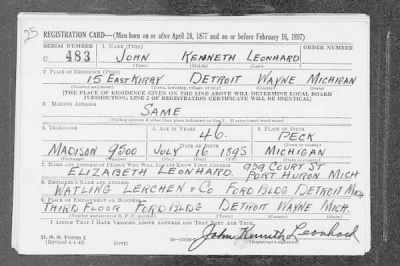 25
REGISTRATION CARD—(Men born on or after April 28, 1877 and on or before February 16, 1897)
SERIAL NUMBER 1. NAME (Print) ORDER NUMBER
U 483 JOHN KENNETH LEONHARD
(First) (Middle) (Last)
2. PLACE OF RESIDENCE (Print)
15 EAST KIRBY DETROIT WAYNE MICHIGAN
(Number and street) (Town, township, village, or city) (County) (State)
[THE PLACE OF RESIDENCE GIVEN ON THE LINE ABOVE WILL DETERMINE LOCAL BOARD
JURISDICTION; LINE 2 OF REGISTRATION CERTIFICATE WILL BE IDENTICAL]
3. MAILING ADDRESS
SAME
4. TELEPHONE 5. AGE IN YEARS 6. PLACE OF BIRTH
46 PECK
DATE OF BIRTH
MADISON 9500 JULY 16 1895 MICHIGAN
(Exchange) (Number) (Mo.) (Day) (Yr.) (State or country)
7. NAME AND ADDRESS OF PERSON WHO WILL ALWAYS KNOW YOUR ADDRESS
939 COURT ST
ELIZABETH LEONHARD PORT HURON MICH
8. EMPLOYER'S NAME AND ADDRESS
WATLING LERCHEN & CO FORD BLDG DETROIT MICH
9. PLACE OF EMPLOYMENT OR BUSINESS
THIRD FLOOR FORD BLDG DETROIT WAYNE MICH.
(Number and street or R. F. D. number) (Town) (County) (State)
I AFFIRM THAT I HAVE VERIFIED ABOVE ANSWERS AND THAT THEY ARE TRUE.
D. S. S. Form 1
(Revised 4-1-42) (over)
John Kenneth Leonhard
(Registrant's signature)